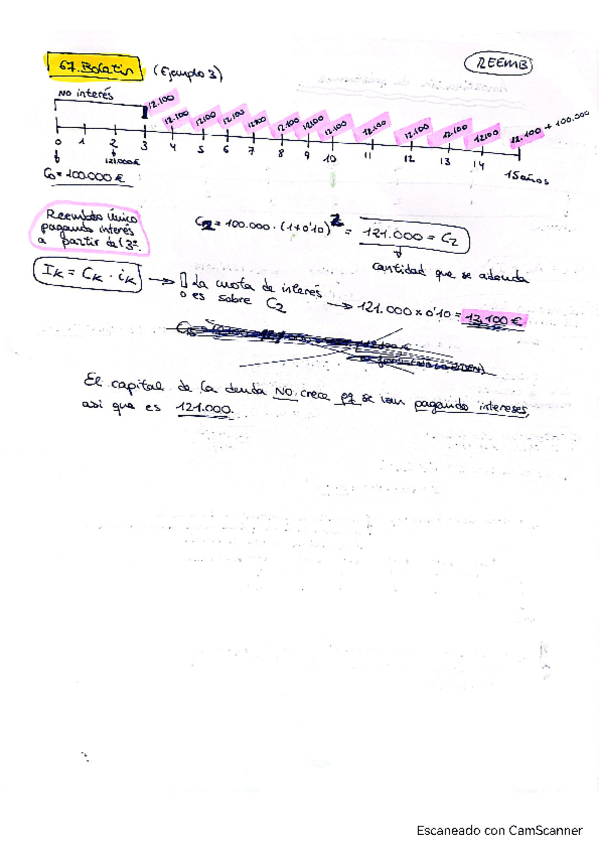 67. Boletin (Ejemplo 3)
REEMB
No interés
12.100 12.100 12.100 12.100 12.100 12.100 12.100 12.100 12.100 12.100 12.100 12.100 12.100 + 100.000
0 1 2 3 4 5 6 7 8 9 10 11 12 13 14 15 años
121.000€
C0 = 100.000 €
Reembolso Único
pagando interés
a partir del 3º.
C2 = 100.000 · (1+0'10)^2 = 121.000 = C2
cantidad que se adeuda
IK = CK · iK → ! La cuota de interés
es sobre C2 → 121.000 x 0'10 = 12.100 €
El capital de la deuda NO crece pq se van pagando intereses,
asi que es 121.000.
Escaneado con CamScanner